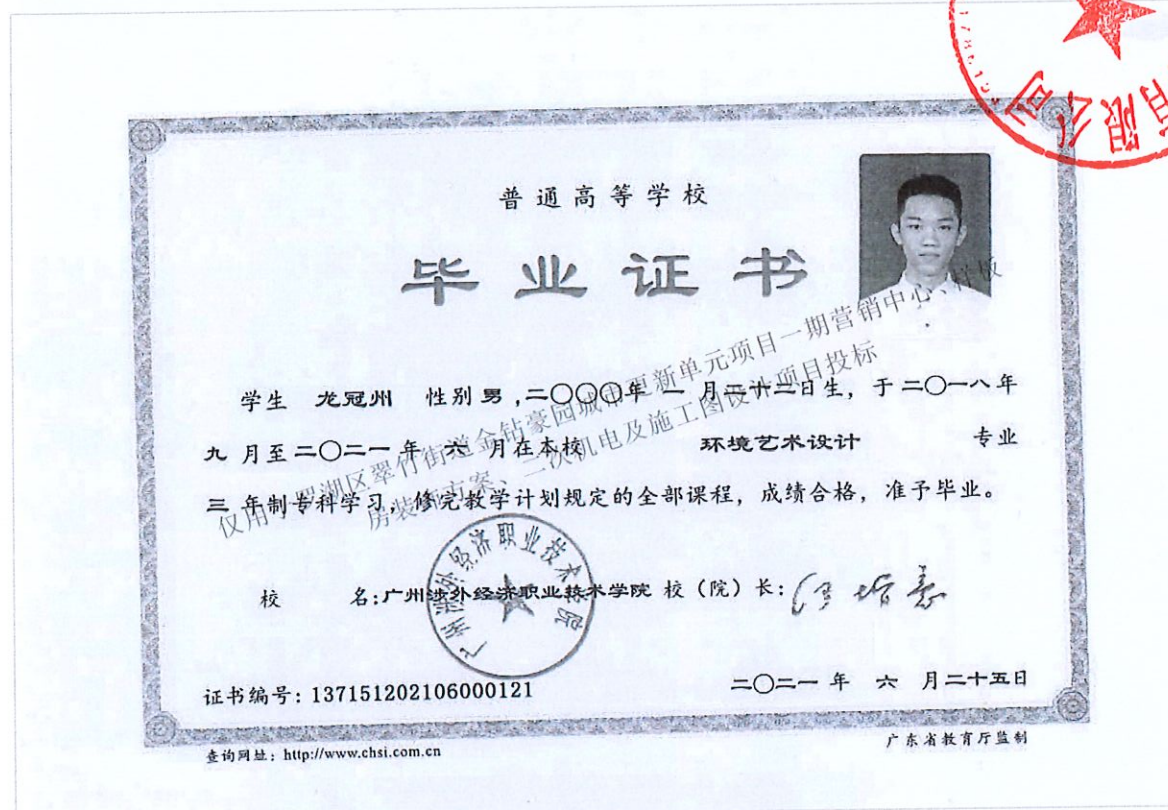 普通高等学校
毕业证书
学生 龙冠州 性别男，二〇〇〇年 一 月二十二日生，于二〇一八年
九 月至二〇二一 年 六 月在本校 环境艺术设计 专业
三 年制专科学习，修完教学计划规定的全部课程，成绩合格，准予毕业。
校 名：广州涉外经济职业技术学院 校（院）长：
广州涉外经济职业技术学院
证书编号：137151202106000121
二〇二一 年 六 月二十五日
查询网址：http://www.chsi.com.cn
广东省教育厅监制
仅用于罗湖区翠竹街道金钻豪园城市更新单元项目一期营销中心、样板
房装饰方案、二次机电及施工图设计项目投标
有限公司